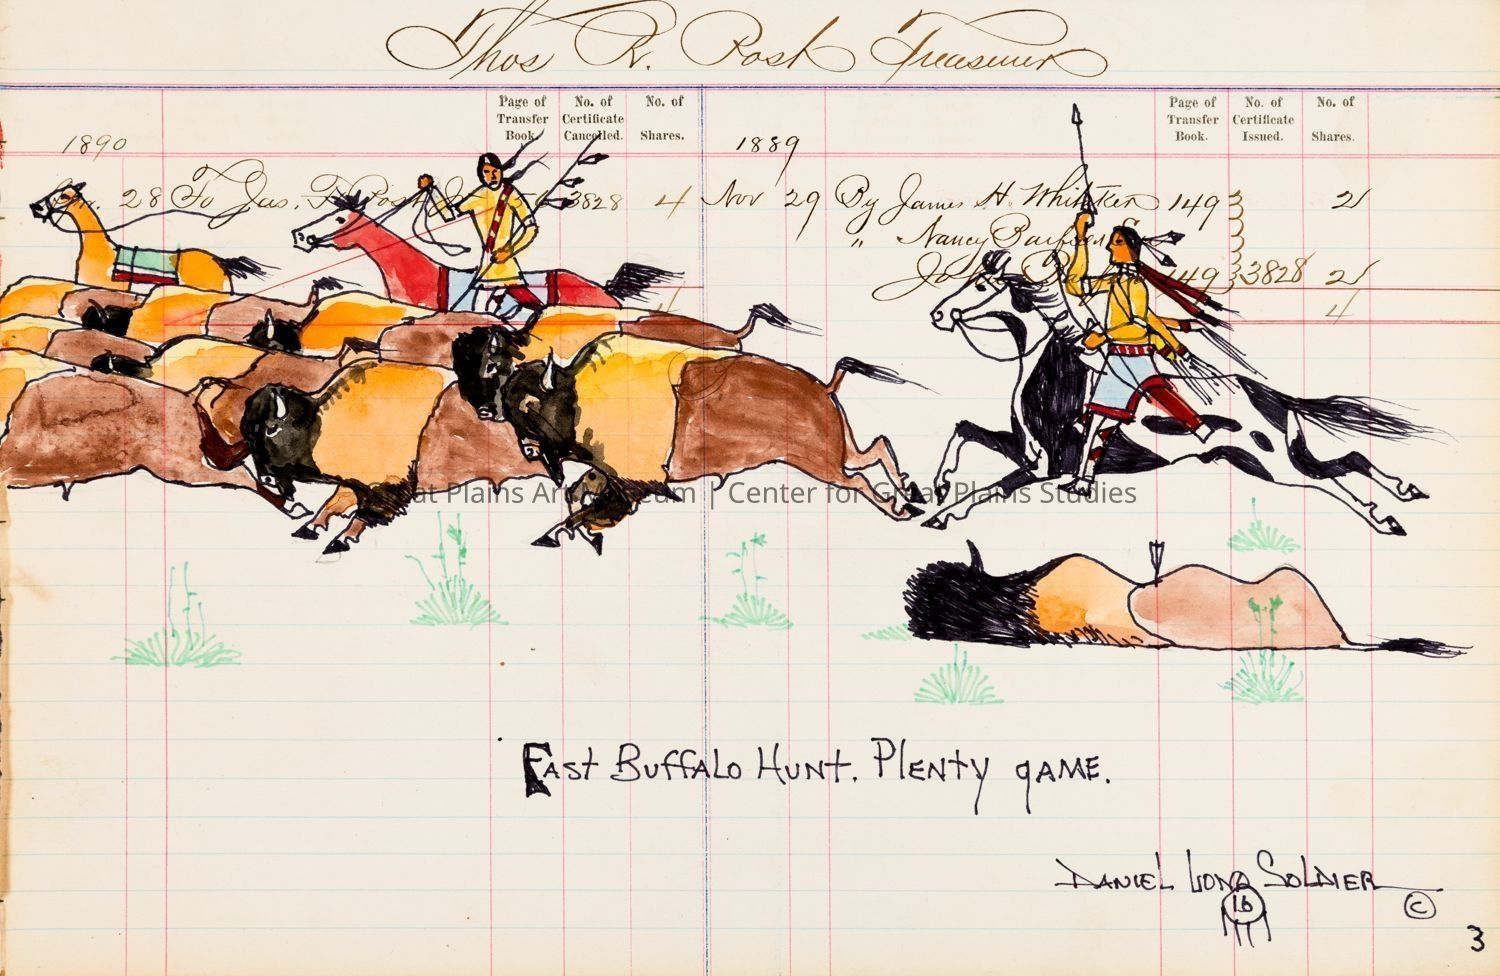 Thos R. Post Treasurer
Page of Transfer Book.
No. of Certificate Cancelled.
No. of Shares.
Page of Transfer Book.
No. of Certificate Issued.
No. of Shares.
1890
1889
28 To Jas. F. Post 3828 4
Nov 29 By James H. Whitaker 149 2
" Nancy
149 3828 2
4
4
Great Plains Art Museum | Center for Great Plains Studies
Fast Buffalo Hunt. Plenty game.
Daniel Long Soldier
16
©
3